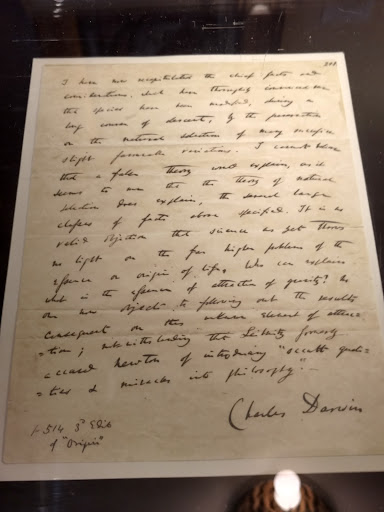 I have now recapitulated the chief facts and
considerations, which have thoroughly convinced me
that species have been modified, during a
long course of descent, by the preservation
or the natural selection of many successive
slight favourable variations. I cannot believe
that a false theory would explain, as it
seems to me that the theory of natural
selection does explain, the several large
classes of facts above specified. It is no
valid objection that science as yet throws
no light on the far higher problem of the
essence or origin of life. Who can explain
what is the essence of attraction of gravity? No
one now objects to following out the results
consequent on this unknown element of attrac
=tion; notwithstanding that Leibnitz formerly
accused Newton of introducing "occult quali=
=ties & miracles into philosophy".—
Charles Darwin
p 514 3d Edit
of "Origin"